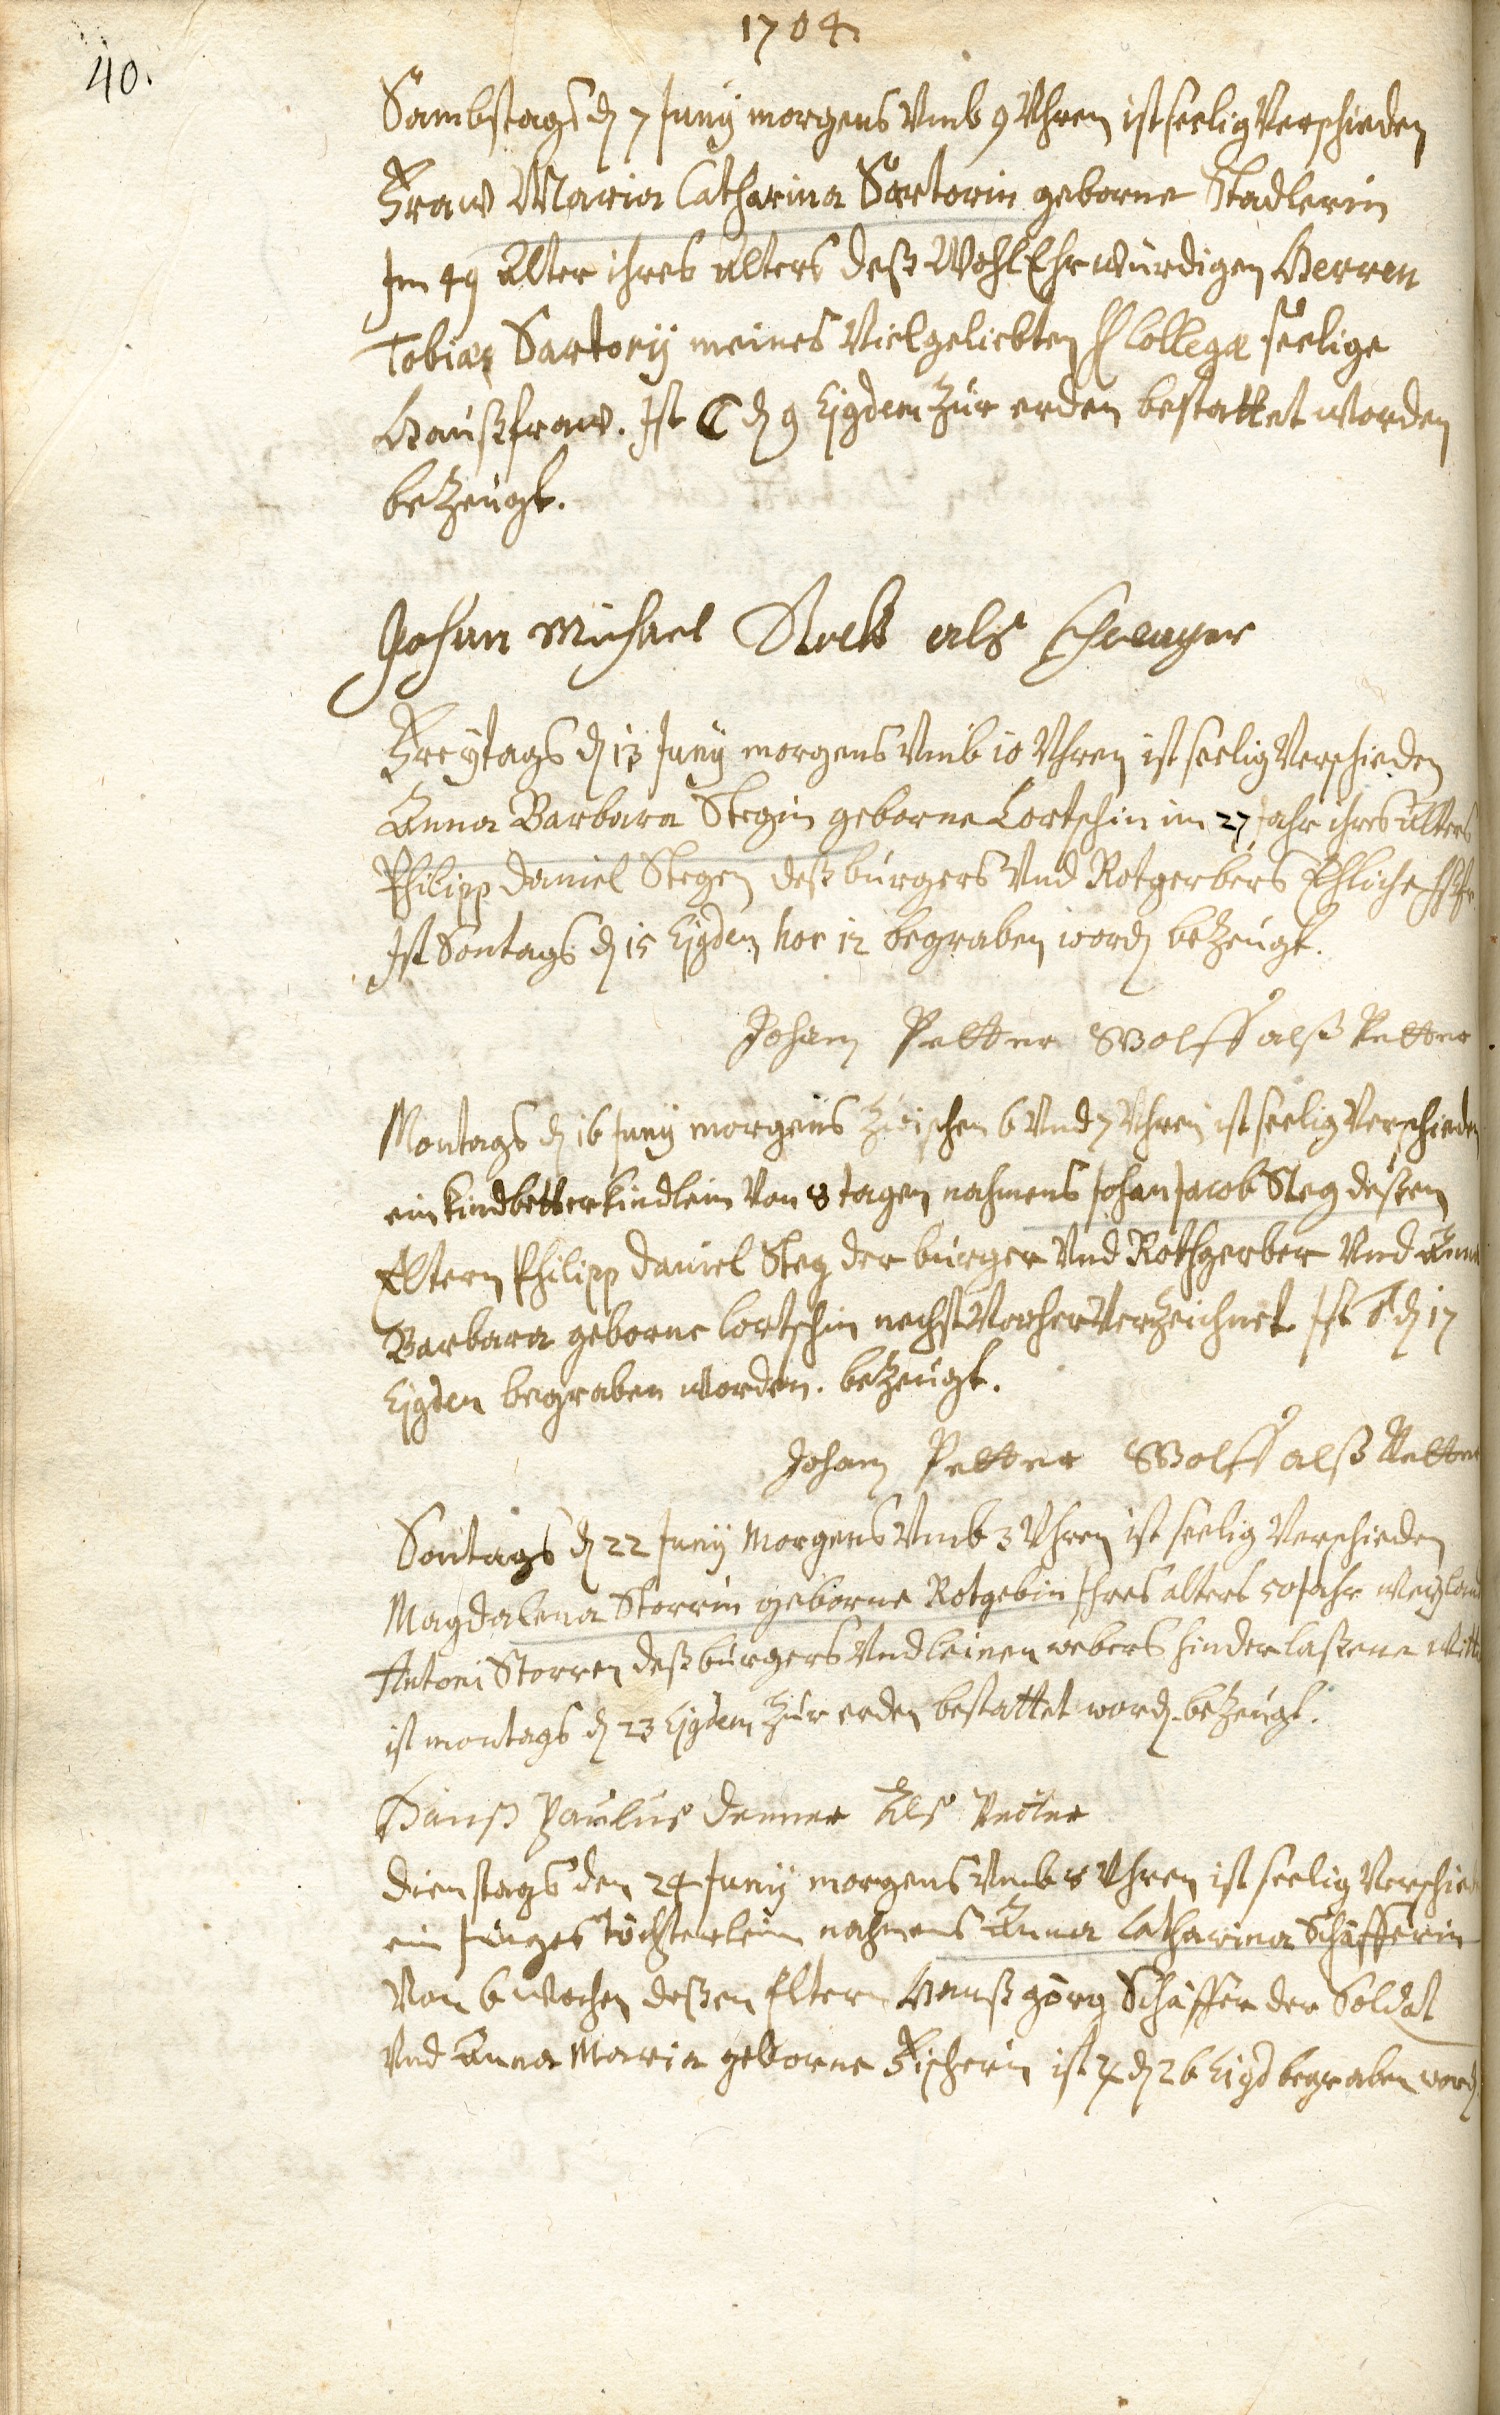 1704
40.
Sambstags d 7 Juny morgens Vmb 9 Vhren ist seelig Verschieden
Fraw Maria Catharina Sartorin geborne Stadlerin
Im 49 Alter ihres alters deß WohlEhrwürdigen Herren
Tobiæ Sartory meines Vielgeliebten H Collegæ seelige
Haußfraw. Ist ☾ d 9 Ejgdem Zur erden bestattet worden
beZeugt.
Johan Michael als Schwager
Freytags d 13 Juny morgens Vmb 10 Vhren ist seelig Verschieden
Anna Barbara Stegin geborne Lortschin im 27 Jahr ihres alters
Philipp Daniel Stegen deß burgers Vnd Rotgerbers Ehliche
Ist Sontags d 15 Ejgdem hor 12 begraben word beZeugt.
Johan Petter Wolff alß Vetter
Montags d 16 Juny morgens Zwischen 6 Vnd 7 Vhren ist seelig Verschieden
ein kindbetterkindlein Von 8 tagen nahmens Johan Jacob Steg deßen
Eltern Philipp Daniel Steg der burger Vnd Rothgerber Vnd Anna
Barbara geborne Lortschin nechst Vorher Verzeichnet Ist ♂ d 17
Ejgdem begraben worden. beZeugt.
Johan Petter Wolff alß Vetter
Sontags d 22 Juny Morgens Vmb 3 Vhren ist seelig Verschieden
Magdalena Storrin geborne Rotgebin Ihres alters 50 Jahr weyland
Antoni Storren deß burgers Vnd leinenwebers hinderlaßene Witt
ist montags d 23 Ejgdem Zur erden bestattet word. beZeugt.
Hanß Paulus Denner Als Vetter
Dienstags den 24 Juny morgens Vmb 8 Vhren ist seelig Verschied
ein Junges töchterlein nahmens Anna Catharina Schäfferin
Von 6 wochen deßen Eltern Hanß görg Schäffer der Soldat
Vnd Anna Maria geborne Fischerin ist ♃ d 26 Ejgd begraben word